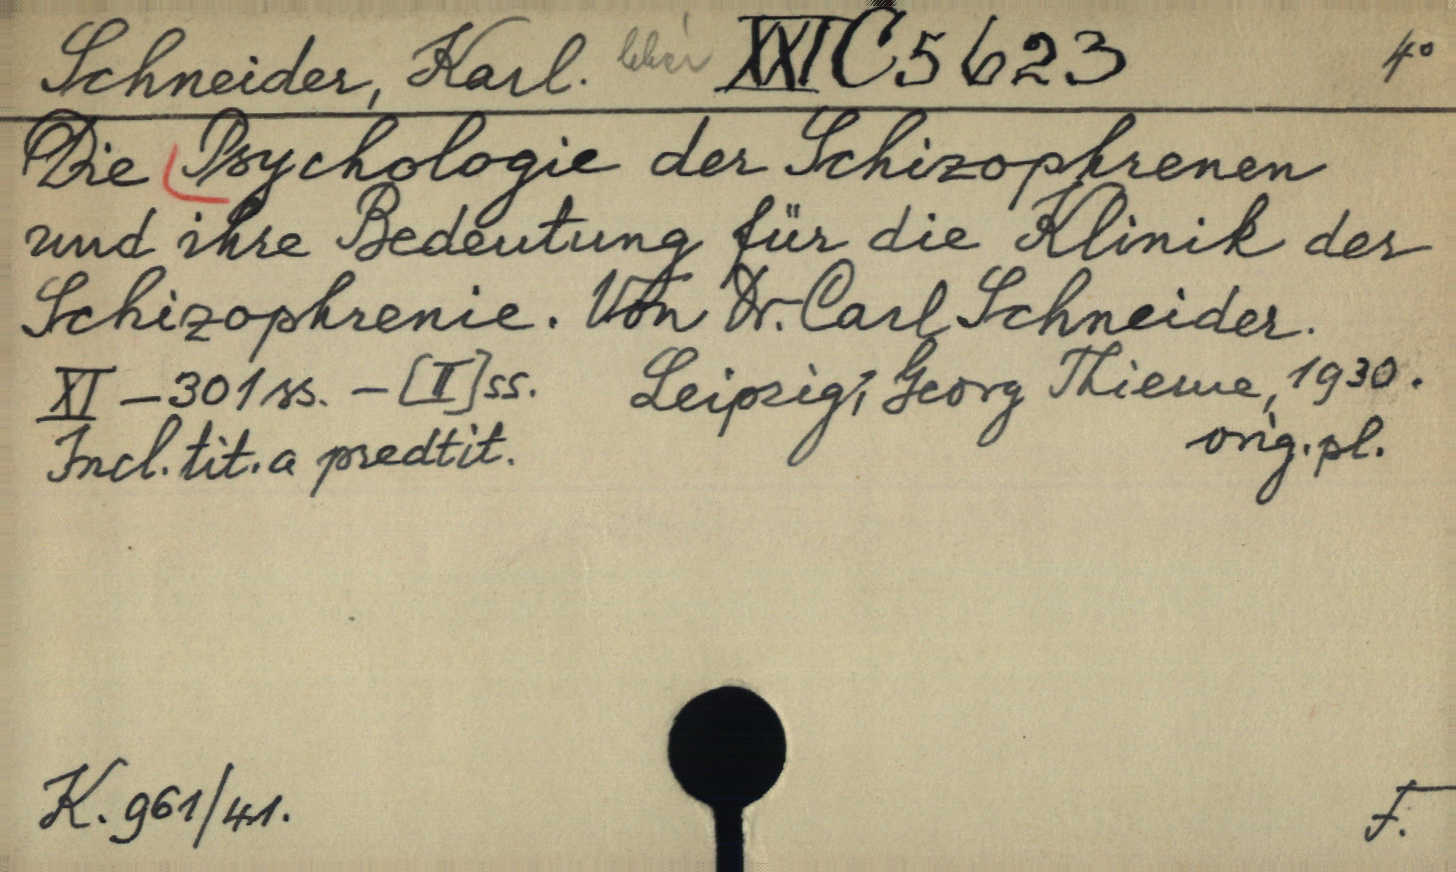 Schneider, Karl. XXI C 5623 4°
Die Psychologie der Schizophrenen
und ihre Bedeutung für die Klinik der
Schizophrenie. Von Dr. Carl Schneider.
XI – 301 ss. – [II] ss. Leipzig, Georg Thieme, 1930.
Incl. tit. a predtit. orig. pl.
K. 961/41. F.